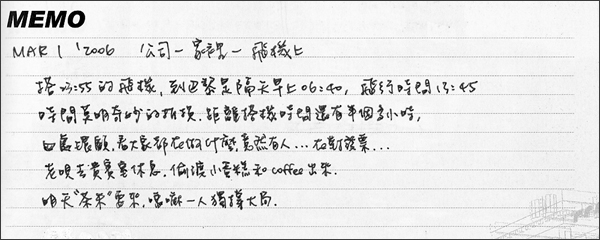 MEMO
MAR 1 '2006 公司－家裡－飛機上
搭23:55的飛機，到巴黎是隔天早上06:40，飛行時間13:45
時間莫明奇妙的折損。距離搭機時間還有半個多小時，
四處環顧，看大家都在做什麼竟然有人...在對發票...
老唄去貴賓室休息，偷渡小蛋糕和coffee出來。
明天"茶米"要來，嘿嘛一人獨撐大局。